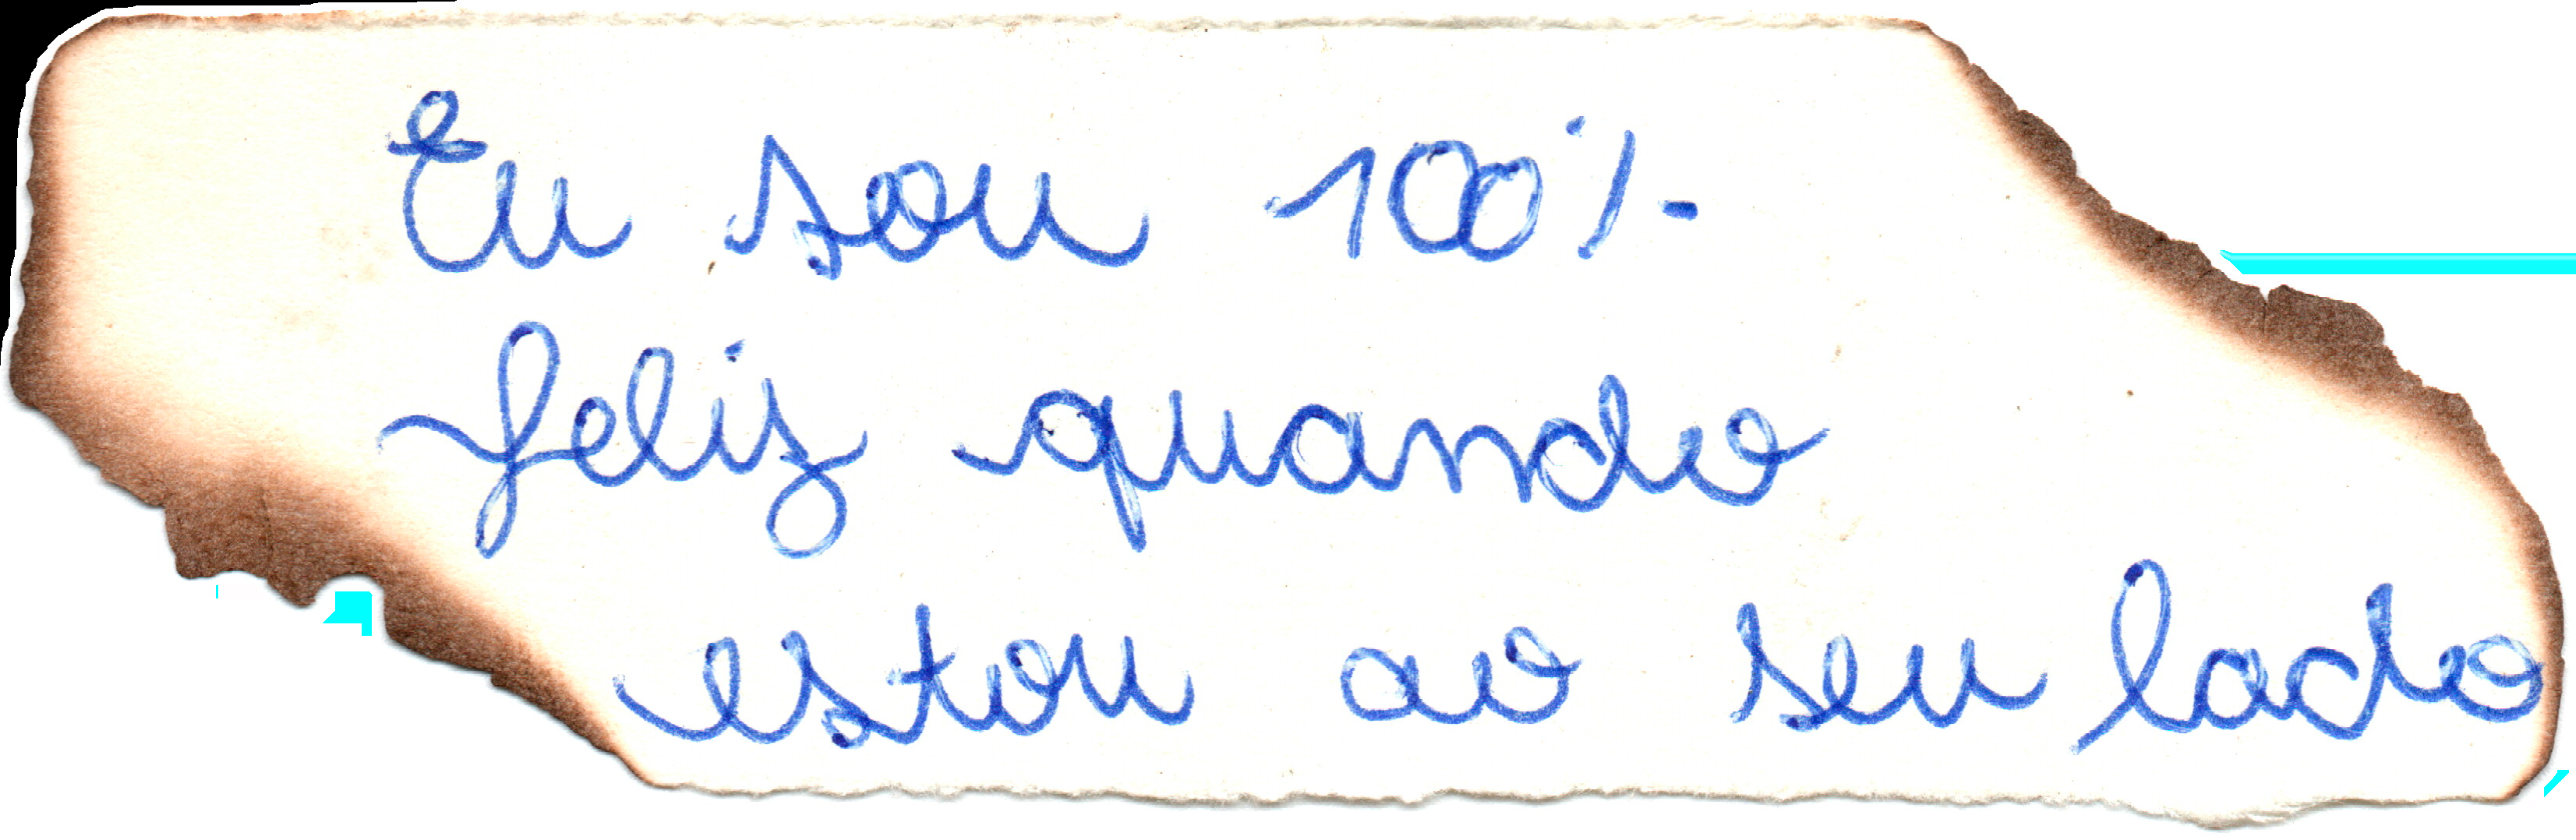 Eu sou 100%
feliz quando
estou ao seu lado